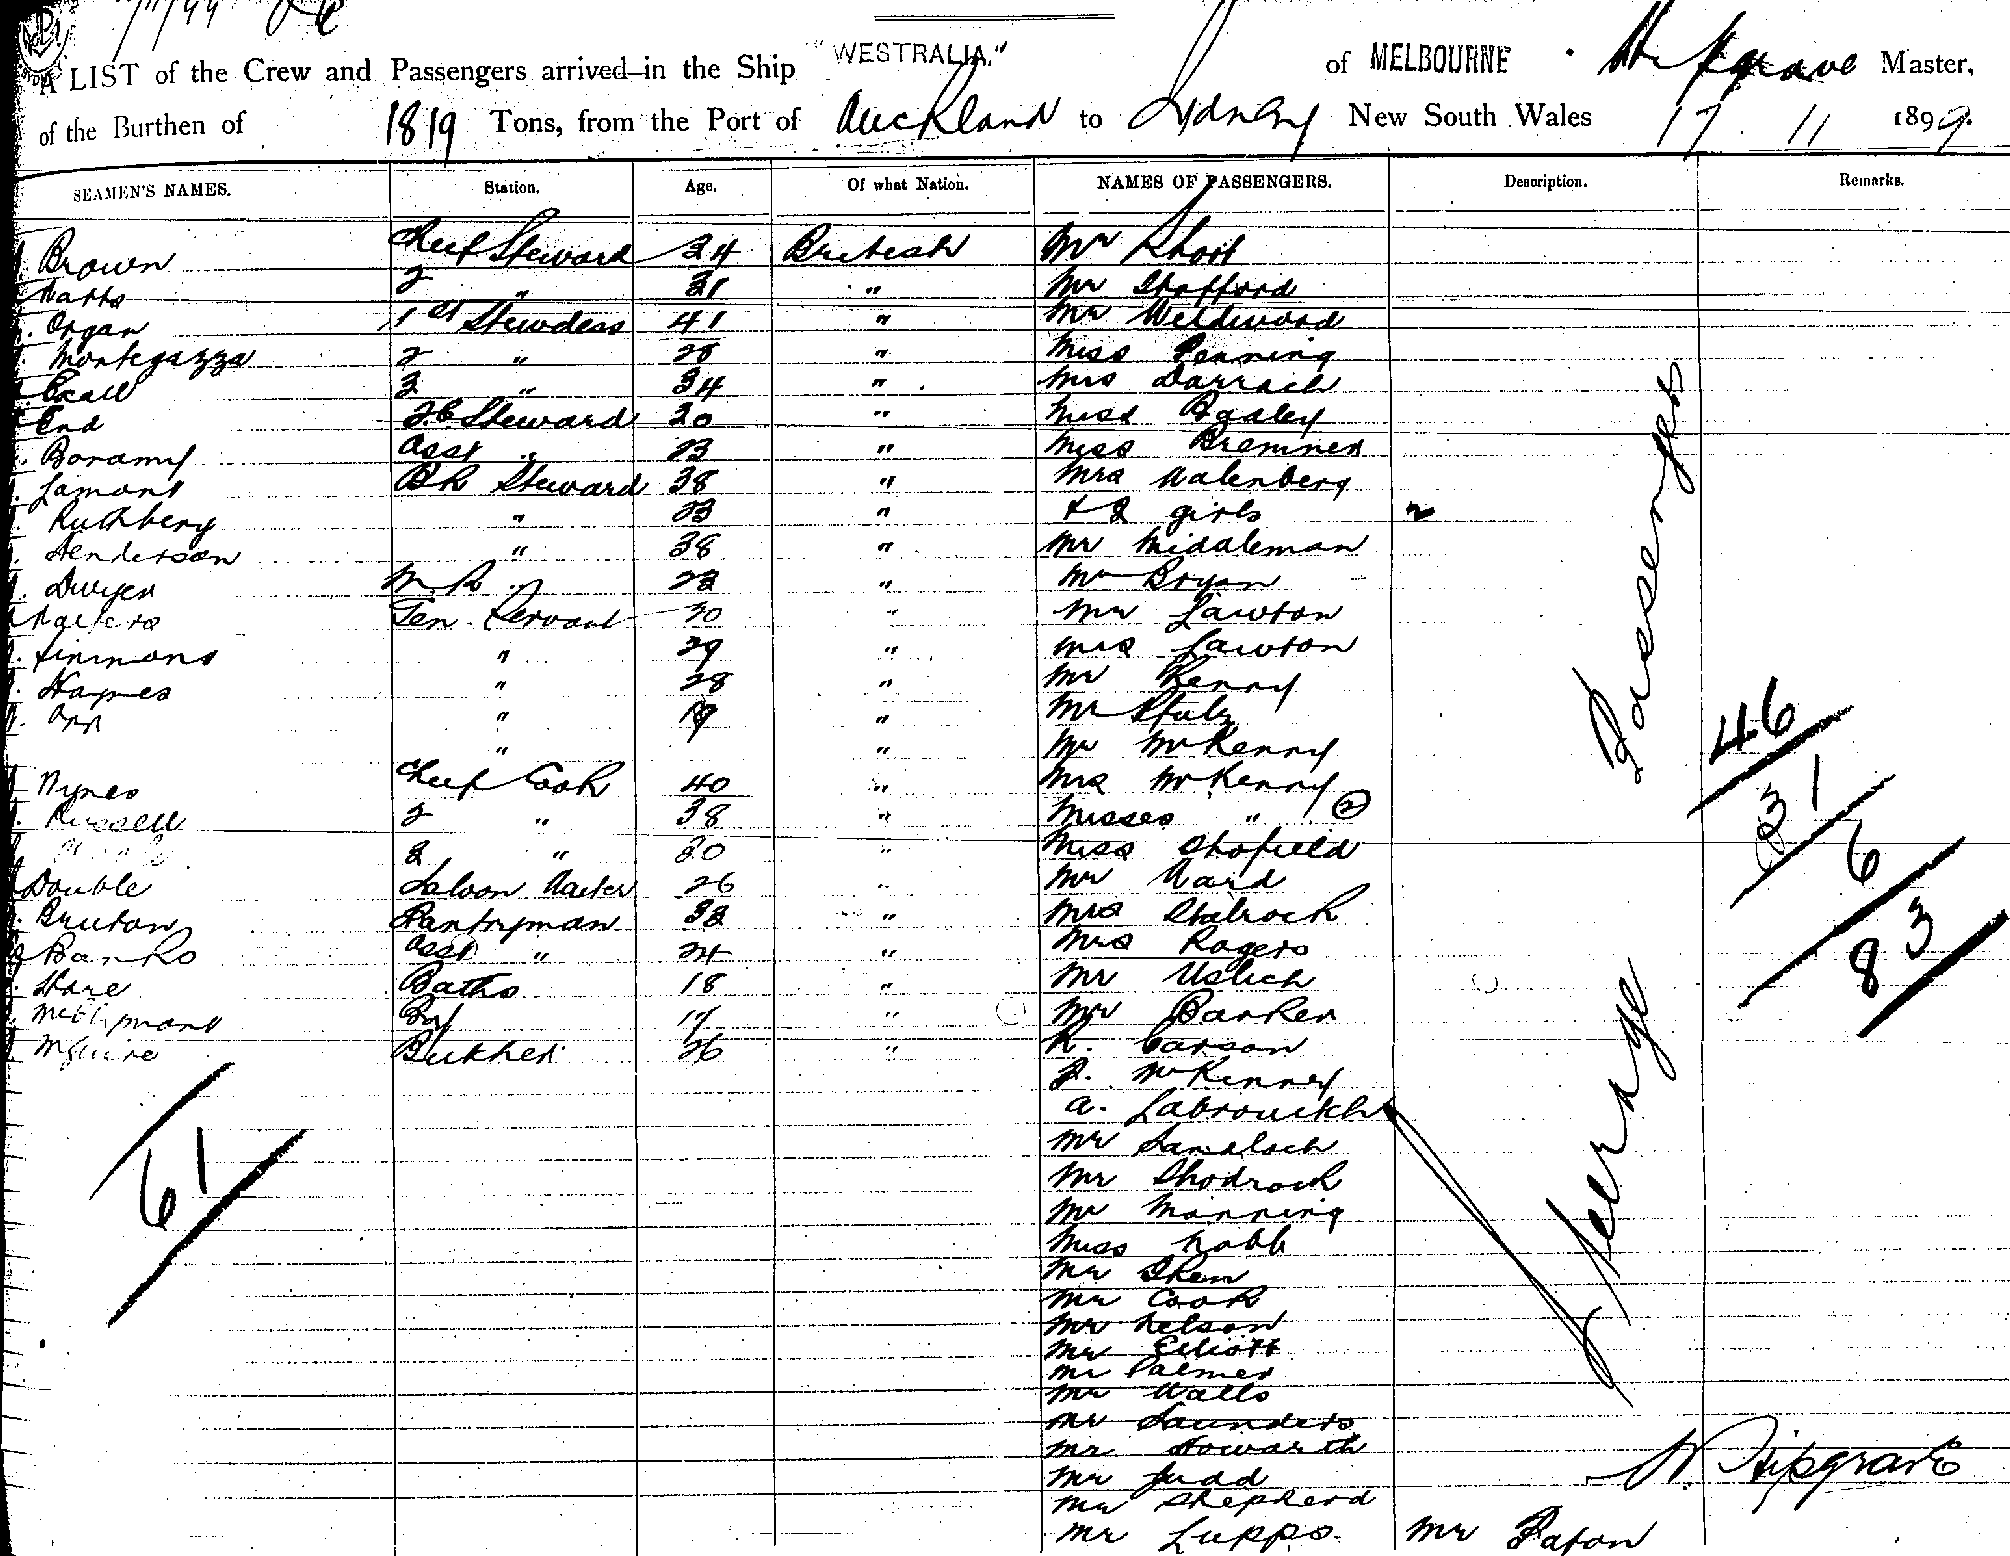 A LIST of the Crew and Passengers arrived in the Ship "WESTRALIA." of MELBOURNE Master,
of the Burthen of 1819 Tons, from the Port of Auckland to Sydney New South Wales 17 11 1899.
SEAMEN'S NAMES. Station. Age. Of what Nation. NAMES OF PASSENGERS. Description. Remarks.
Brown Cheif Steward 34 British Mr Short
Watts 2 " 31 " Mr Stafford
Organ 1st Stewdess 41 " Mr Weldwood
Montegazza 2 " 28 " Miss Penning
Exall 3 " 34 " Mrs Darrach
End 2C Steward 20 " Miss Bayley
Boramy Asst " 23 " Miss Bremner
Lamont BR Steward 38 " Mrs Walenberg
Ruthberg " 23 " + 2 girls 2
Henderson " 38 " Mr Middleman
Dwyer M.R. " 22 " Mr Bryan
Walters Gen. Servant 30 " Mr Lawton
Simmons " 29 " Mrs Lawton
Haynes " 28 " Mr Kenny
Orr " 19 " Mr Stulz
" " Mr McKenny
Nynes Cheif Cook 40 " Mrs McKenny
Russell 2 " 38 " Misses " 2
3 " 20 " Miss Shofield
Double Saloon Waiter 26 " Mr Ward
Bruton Pantryman 32 " Mrs Stalrock
Banks Asst " 24 " Mrs Rogers
Hare Baths 18 " Mr Uslich
Boy 17 " Mr Barker
McGuire Butcher 26 " R. Carson
P. McKinney
A. Labrouikh
Mr Samaloch
Mr Shodrock
Mr Manning
Miss Nobb
Mr Shem
Mr Cook
Mr Nelson
Mr Elliott
Mr Palmer
Mr Walls
Mr Saunders
Mr Howarth
Mr Judd
Mr Shepherd
Mr Lupps. Mr Paton
61
Steerage Passengers
46
31
6
83
W. Hipgrave